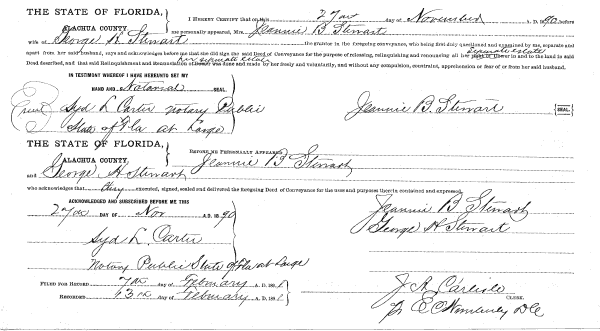 THE STATE OF FLORIDA,
ALACHUA COUNTY
I HEREBY CERTIFY that on this 27th day of November A. D. 1890, before
me personally appeared, Mrs. Jeannie B Stewart
wife of George H Stewart the grantor in the foregoing conveyance, who being first duly questioned and examined by me, separate and
apart from her said husband, says and acknowledges before me that she did sign the said Deed of Conveyance for the purpose of releasing, relinquishing and renouncing all her separate estate in or to the land in said
Deed described, and that said Relinquishment and Renunciation of her separate estate was made and done by her freely and voluntarily, and without any compulsion, constraint, apprehension or fear of or from her said husband.
IN TESTIMONY WHEREOF I HAVE HEREUNTO SET MY
HAND AND Notarial SEAL.
Syd L Carter Notary Public
State of Fla at Large
Jeannie B. Stewart SEAL
THE STATE OF FLORIDA,
ALACHUA COUNTY
BEFORE ME PERSONALLY APPEARED Jeannie B Stewart
and George H Stewart
who acknowledges that they executed, signed, sealed and delivered the foregoing Deed of Conveyance for the uses and purposes therein contained and expressed.
ACKNOWLEDGED AND SUBSCRIBED BEFORE ME THIS
27th DAY OF Nov A. D. 1890
Syd L. Carter
Notary Public State of Fla at Large
Jeannie B Stewart
George H Stewart
FILED FOR RECORD 7th day of February A. D. 1891
RECORDED 13th day of February A. D. 1891
J A Carlisle CLERK.